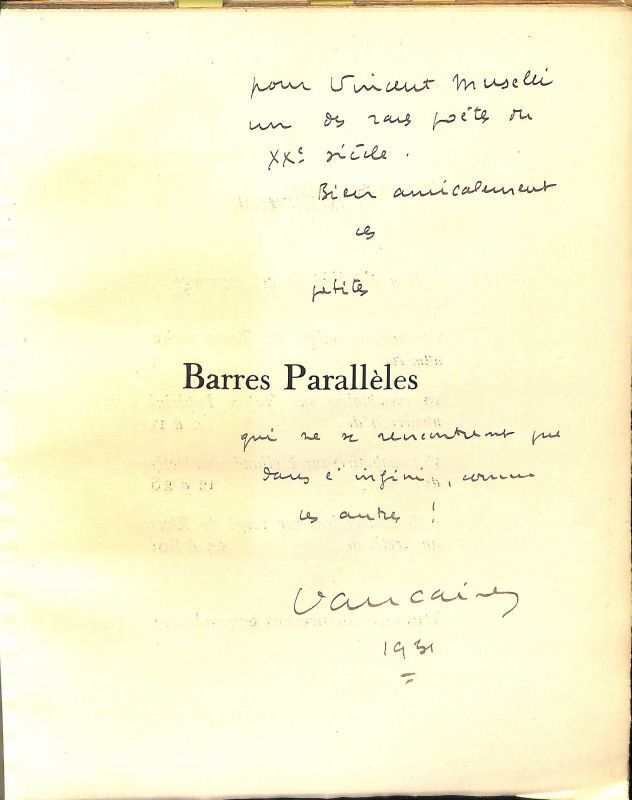 pour Vincent Muselli
un des rares poètes du
XXe siècle.
Bien amicalement
ces
petites
Barres Parallèles
qui ne se rencontrent que
dans l'infini, comme
les autres !
Vaucaire
1931